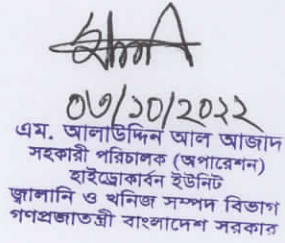 ০৩/১০/২০২২
এম. আলাউদ্দিন আল আজাদ
সহকারী পরিচালক (অপারেশন)
হাইড্রোকার্বন ইউনিট
জ্বালানি ও খনিজ সম্পদ বিভাগ
গণপ্রজাতন্ত্রী বাংলাদেশ সরকার